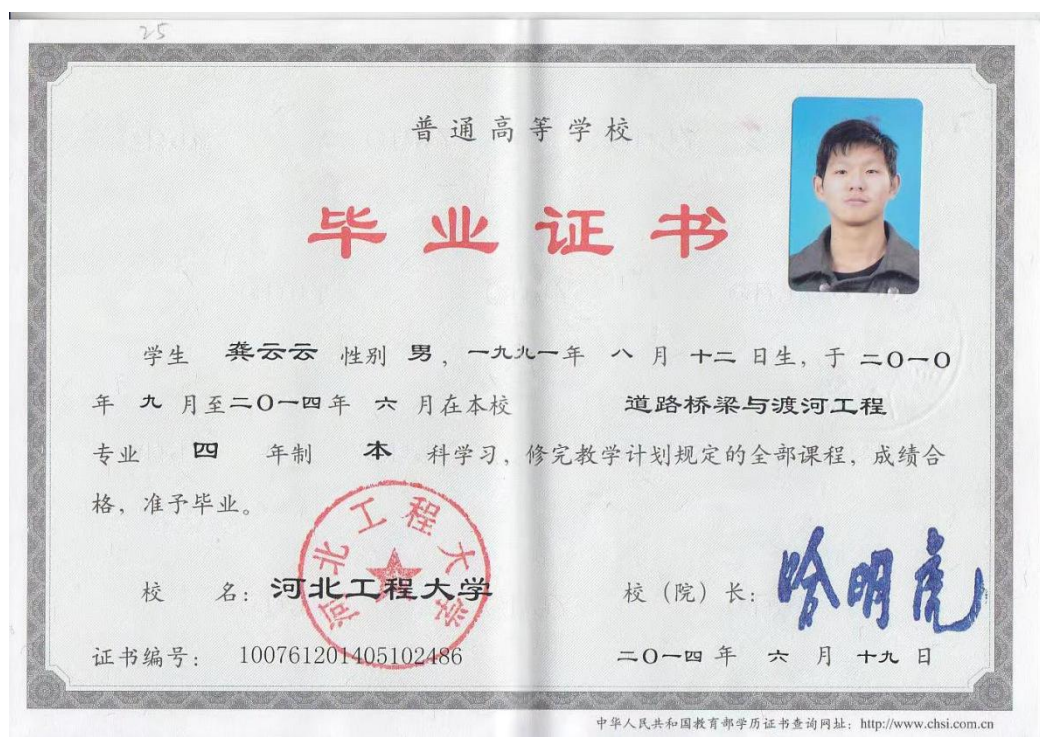 25
普通高等学校
毕业证书
学生 龚云云 性别 男，一九九一年 八 月 十二 日生，于 二O一O
年 九 月至二O一四年 六 月在本校 道路桥梁与渡河工程
专业 四 年制 本 科学习，修完教学计划规定的全部课程，成绩合
格，准予毕业。
河北工程大学
校 名：河北工程大学 校（院）长：哈明虎
证书编号： 100761201405102486 二O一四年 六 月 十九 日
中华人民共和国教育部学历证书查询网址：http://www.chsi.com.cn